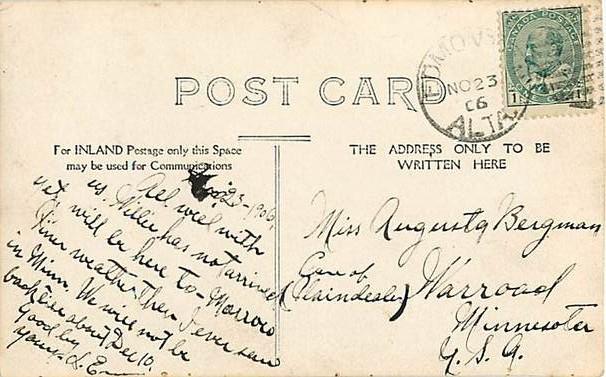 POST CARD
CANADA POSTAGE
1 1
EDMONTON
NO 23
06
ALTA
For INLAND Postage only this Space
may be used for Communications
THE ADDRESS ONLY TO BE
WRITTEN HERE
Nov 23-1906,
All well with
us. Willie has not arrived
yet will be here to-Morrow
Finer weather then I ever saw
in Minn. We will not be
back else about Dec 10.
Good by
Yours L.E.
Miss Augusta Bergman
Care of
(Plaindealer) Warroad
Minnesota
U.S.A.